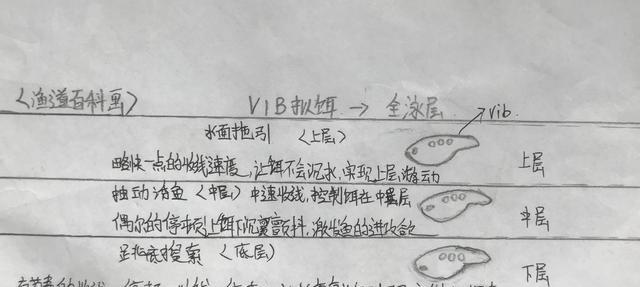 《渔道百科画》 VIB拟饵 → 全泳层
vib
水面拖引 〈上层〉
略快一点的收线速度,让饵不会沉水,实现上层游动 上层
抽动泊鱼〈中层〉中速收线,控制饵在中层
偶尔的停顿让饵下沉 颤抖,激发鱼的进攻欲 中层
底搜索 〈底层〉 下层